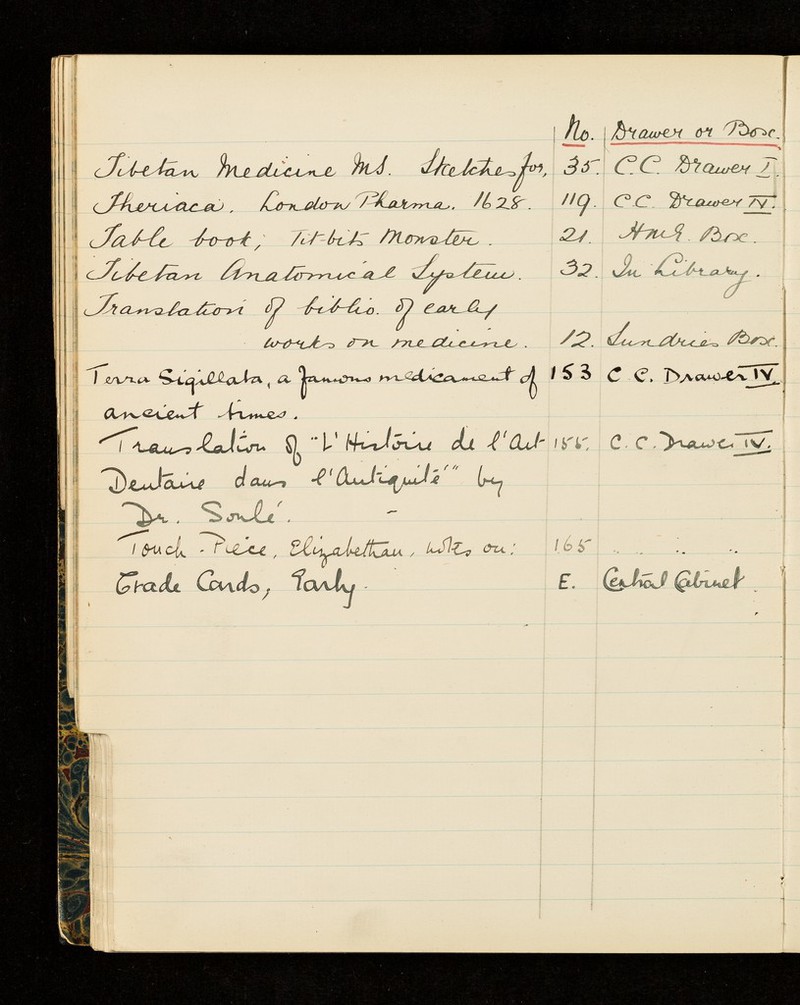 No. Drawer or Box.
Tibetan Medicine MS. Sketches for, 35. C.C. Drawer I.
Theriaca. London Pharma. 1628. 119. C.C. Drawer IV.
Table book, Tit-bits Monster. 21. Box.
Tibetan Anatomical System. 32. In Library.
Translation of biblio. of early
works on medicine. 12. Sundries Box.
Terra Sigillata, a famous medicament of 153 C. C. Drawer IV.
ancient times.
Translation of "L'Histoire de l'Art 155. C. C. Drawer IV.
Dentaire dans l'Antiquité" by
Dr. Soulé.
Touch-Piece, Elizabethan, notes on: 165 .. .. .. ..
Trade Cards, Early. E. Central Cabinet.